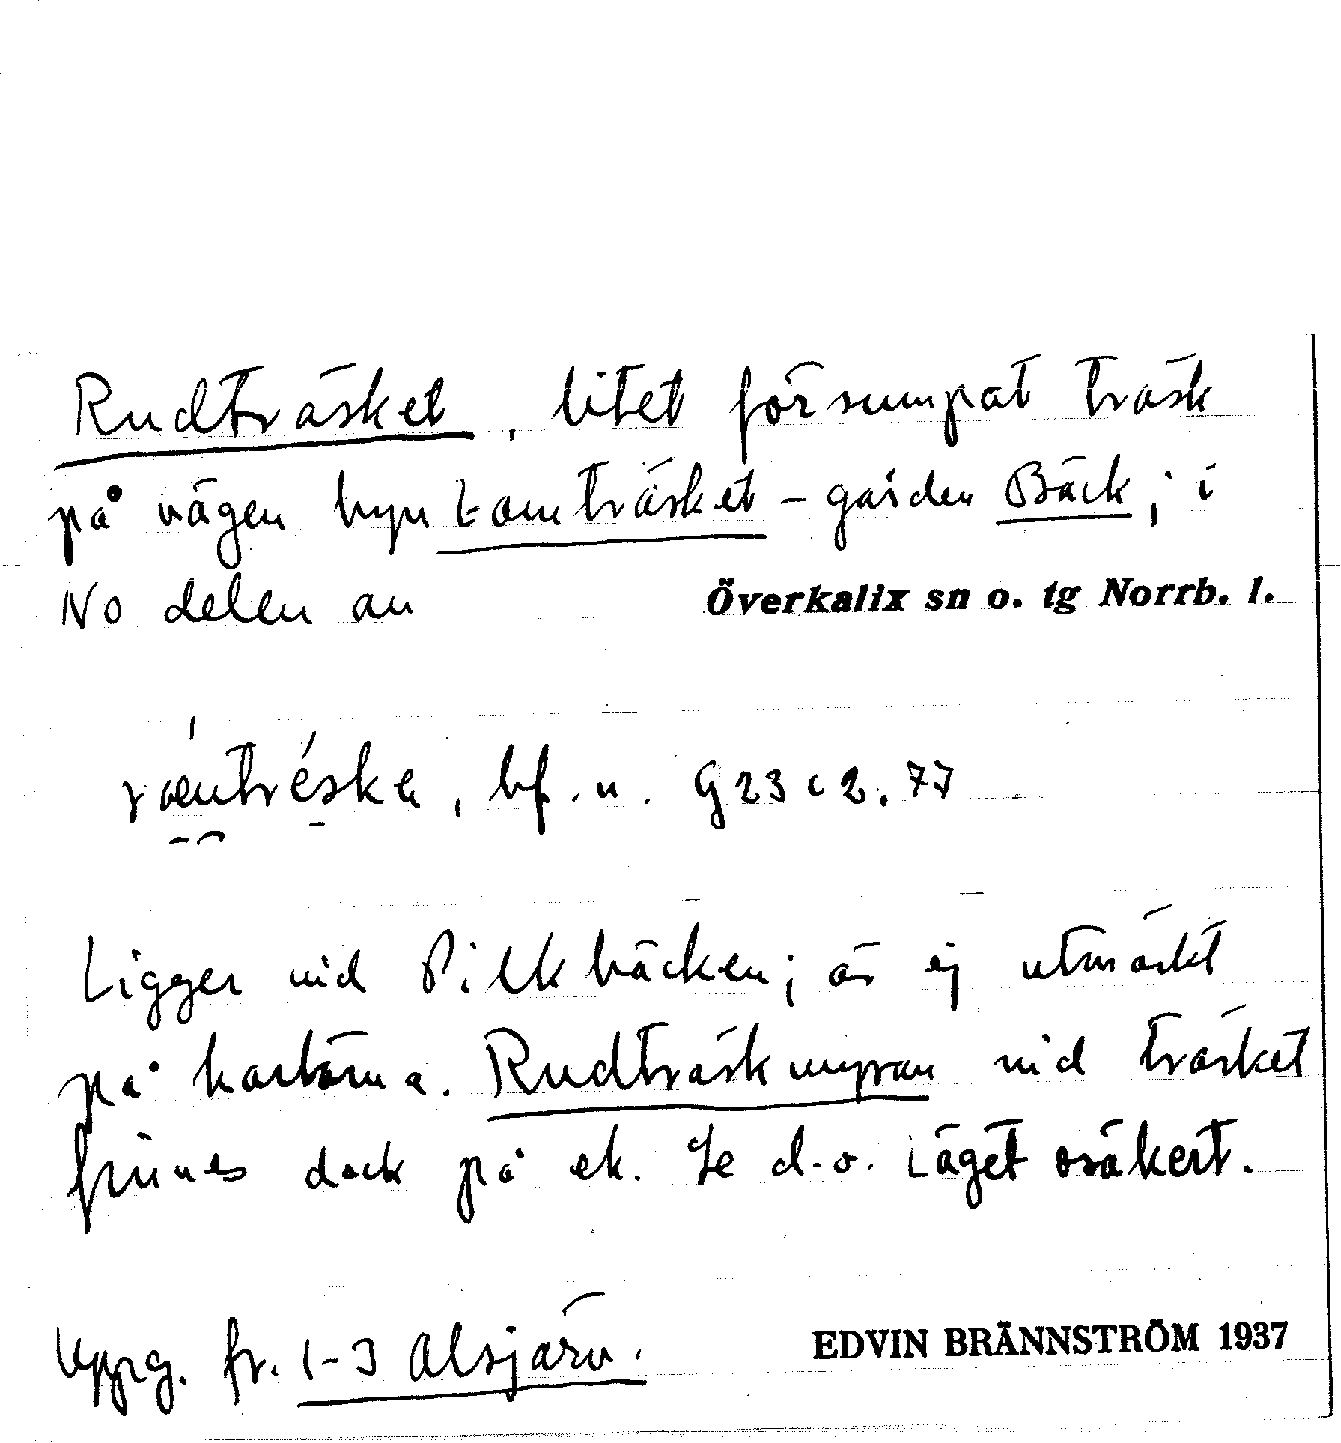 Rudträsket, litet försumpat träsk
på vägen byn Lomträsket - gården Bäck; i
No delen av Överkalix sn o. tg Norrb. l.
bf. n. G23 c 2. 77
Ligger vid Pilkbäcken; är ej utmärkt
på kartorna. Rudträskmyran vid träsket
finnes dock på ek. Se d.o. Läget osäkert.
Uppg. fr. 1-3 Alsjärv.
EDVIN BRÄNNSTRÖM 1937